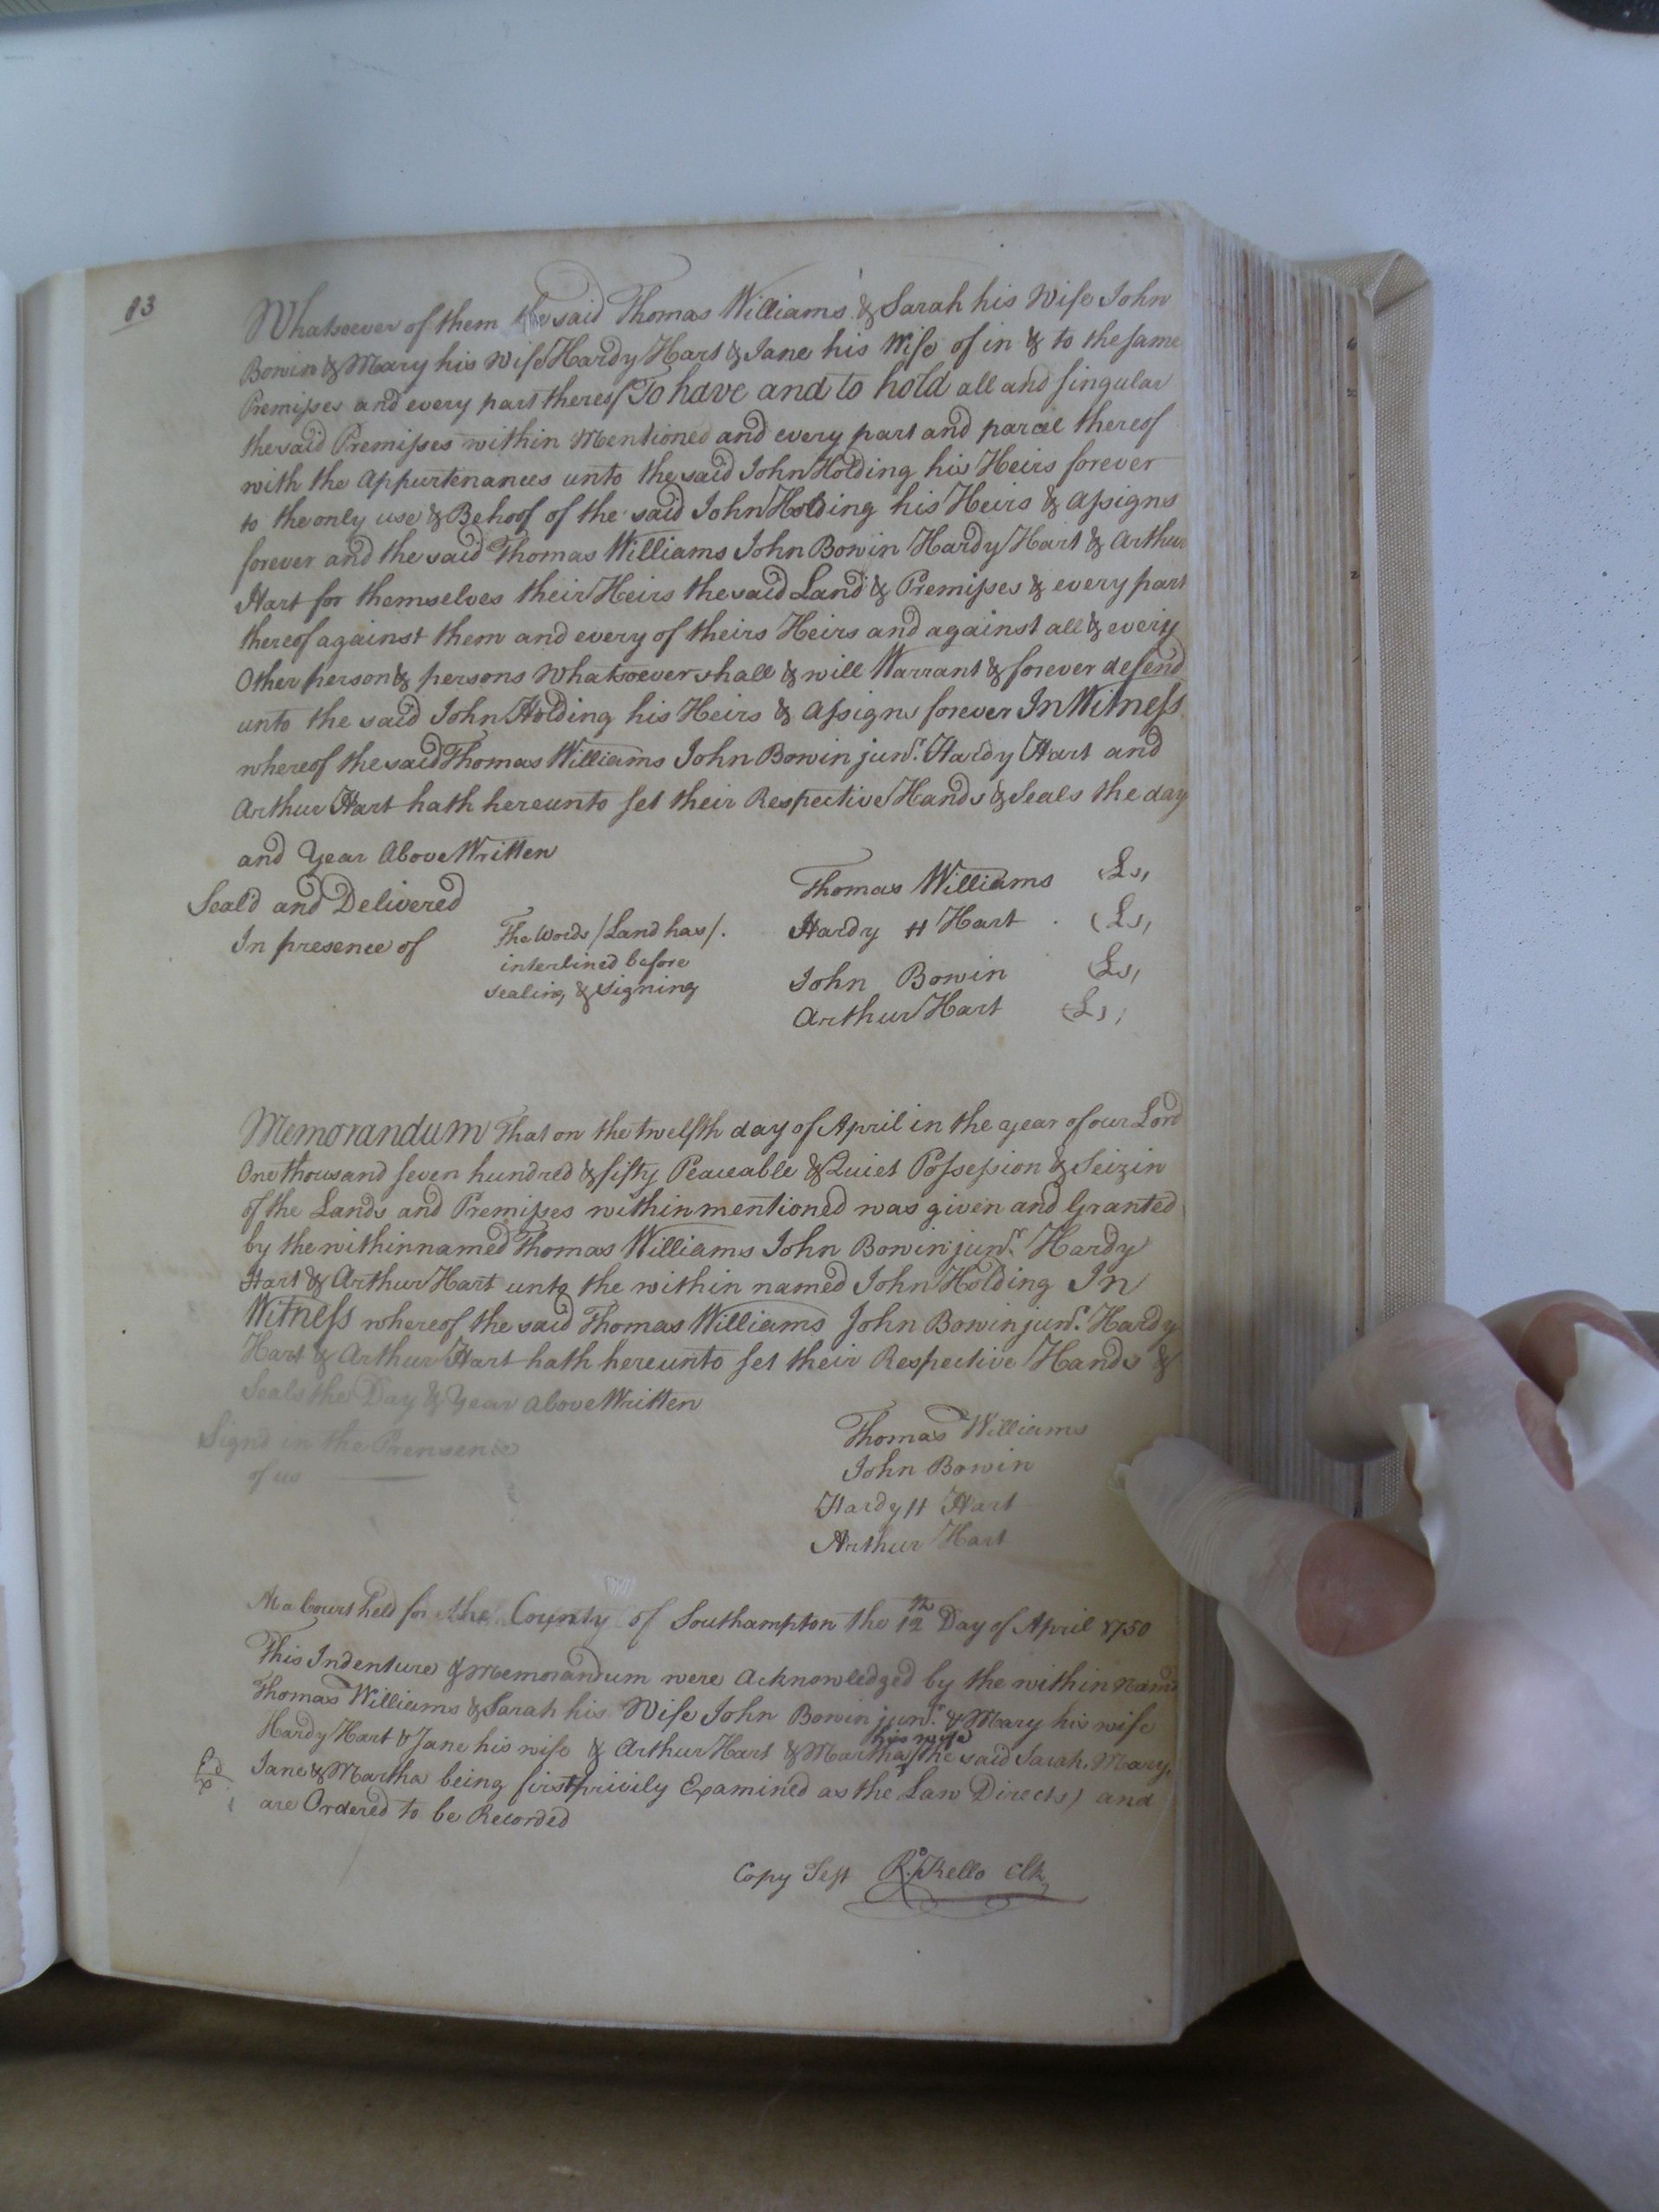 83
Whatsoever of them the said Thomas Williams & Sarah his Wife John
Bowin & Mary his wife Hardy Hart & Jane his Wife of in & to the same
Premisses and every part thereof To have and to hold all and singular
the said Premisses within Mentioned and every part and parcel thereof
with the Appurtenances unto the said John Holding his Heirs forever
to the only use & Behoof of the said John Holding his Heirs & Assigns
forever and the said Thomas Williams John Bowin Hardy Hart & Arthur
Hart for themselves their Heirs the said Land & Premisses & every part
thereof against them and every of theirs Heirs and against all & every
Other person & persons Whatsoever shall & will Warrant & forever defend
unto the said John Holding his Heirs & Assigns forever In Witness
whereof the said Thomas Williams John Bowin junr. Hardy Hart and
Arthur Hart hath hereunto set their Respective Hands & Seals the day
and Year Above Written
Seald and Delivered
In presence of
The Words /Land has/.
interlined before
sealing & signing
Thomas Williams (Ls,
Hardy H Hart . (Ls,
John Bowin (Ls,
Arthur Hart (Ls,
Memorandum That on the twelfth day of April in the year of our Lord
One thousand seven hundred & fifty Peaceable & Quiet Possession & Seizin
of the Lands and Premisses within mentioned was given and Granted
by the within named Thomas Williams John Bowin junr. Hardy
Hart & Arthur Hart unto the within named John Holding In
Witness whereof the said Thomas Williams John Bowin junr. Hardy
Hart & Arthur Hart hath hereunto set their Respective Hands &
Seals the Day & Year above Written
Signd in the Prensence
of us
Thomas Williams
John Bowin
Hardy H Hart
Arthur Hart
At a Court held for the County of Southampton the 12th Day of April 1750
This Indenture & Memorandum were Acknowledged by the within Namd
Thomas Williams & Sarah his Wife John Bowin junr. & Mary his wife
Hardy Hart & Jane his wife & Arthur Hart & Martha his wife (the said Sarah, Mary,
Jane & Martha being first privily Examined as the Law Directs) and
are Ordered to be Recorded
Copy Test Ro. Kello Clk